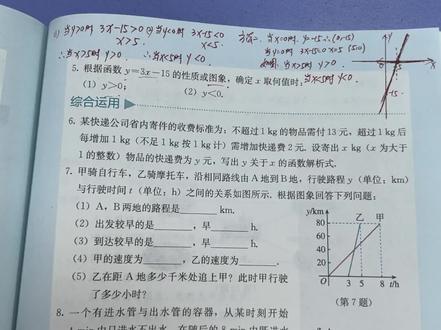 (1) 当y>0时 3x-15>0 (2) 当y<0时 3x-15<0
x>5. x<5.
∴当x>5时 y>0 ∴当x<5时 y<0
当x=0时, y=-15 ∴(0,-15)
当y=0时 3x-15=0 x=5 (5,0)
当x>5时 y>0.
当x<5时 y<0.
5. 根据函数 y=3x-15 的性质或图象, 确定 x 取何值时:
(1) y>0; (2) y<0.
综合运用
6. 某快递公司省内寄件的收费标准为: 不超过 1 kg 的物品需付 13 元, 超过 1 kg 后
每增加 1 kg (不足 1 kg 按 1 kg 计) 需增加快递费 2 元. 设寄出 x kg (x 为大于
1 的整数) 物品的快递费为 y 元, 写出 y 关于 x 的函数解析式.
7. 甲骑自行车, 乙骑摩托车, 沿相同路线由 A 地到 B 地, 行驶路程 y (单位: km)
与行驶时间 t (单位: h) 之间的关系如图所示. 根据图象回答下列问题:
(1) A, B 两地的路程是______ km.
(2) 出发较早的是______, 早______ h.
(3) 到达较早的是______, 早______ h.
(4) 甲的速度为______, 乙的速度为______.
(5) 乙在距 A 地多少千米处追上甲? 此时甲行驶
了多少小时?
y/km
乙 甲
80
60
40
20
O 3 5 8 t/h
(第 7 题)
8. 一个有进水管与出水管的容器, 从某时刻开始